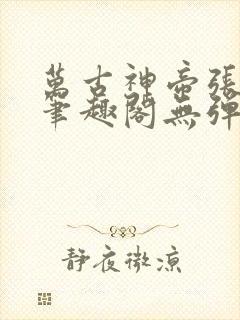 萬古神帝張
筆趣閣無彈
靜夜微涼